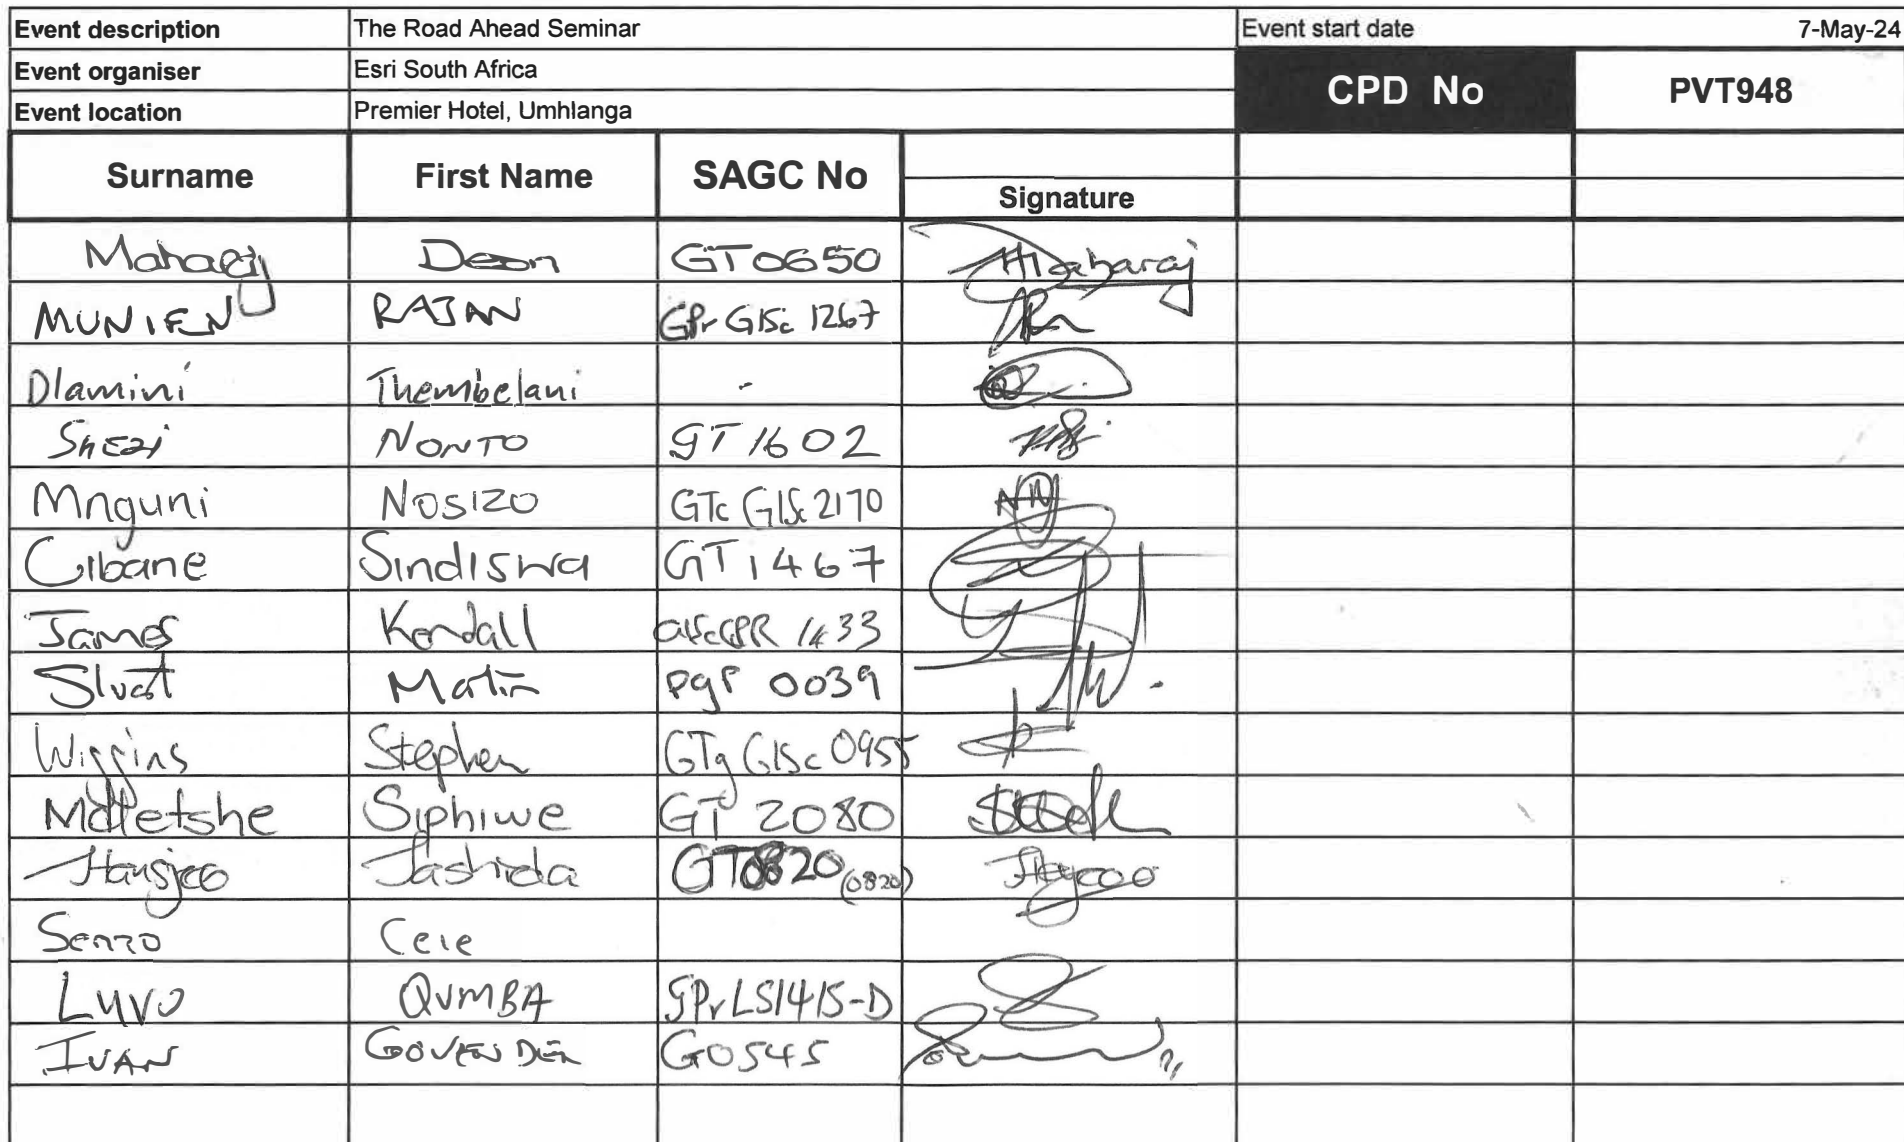 Event description The Road Ahead Seminar Event start date 7-May-24
Event organiser Esri South Africa
CPD No PVT948
Event location Premier Hotel, Umhlanga
Surname First Name SAGC No
Signature
Maharaj Deon GT0650 Maharaj
MUNIEN RAJAN GPr GISc 1267
Dlamini Thembelani -
Shezi NONTO GT 1602
Mnguni NOSIZO GTc GISc 2170
Cibane Sindiswa GT1467
James Kendall GISc GPR 1433
Martin PgP 0039
Wiggins Stephen GTg GISc 0955
Mdletshe Siphiwe GT 2080
Jashida GT0820 (0820)
Senzo Cele
Luvo QUMBA GPrLS1415-D
IVAN GOVENDER G0545